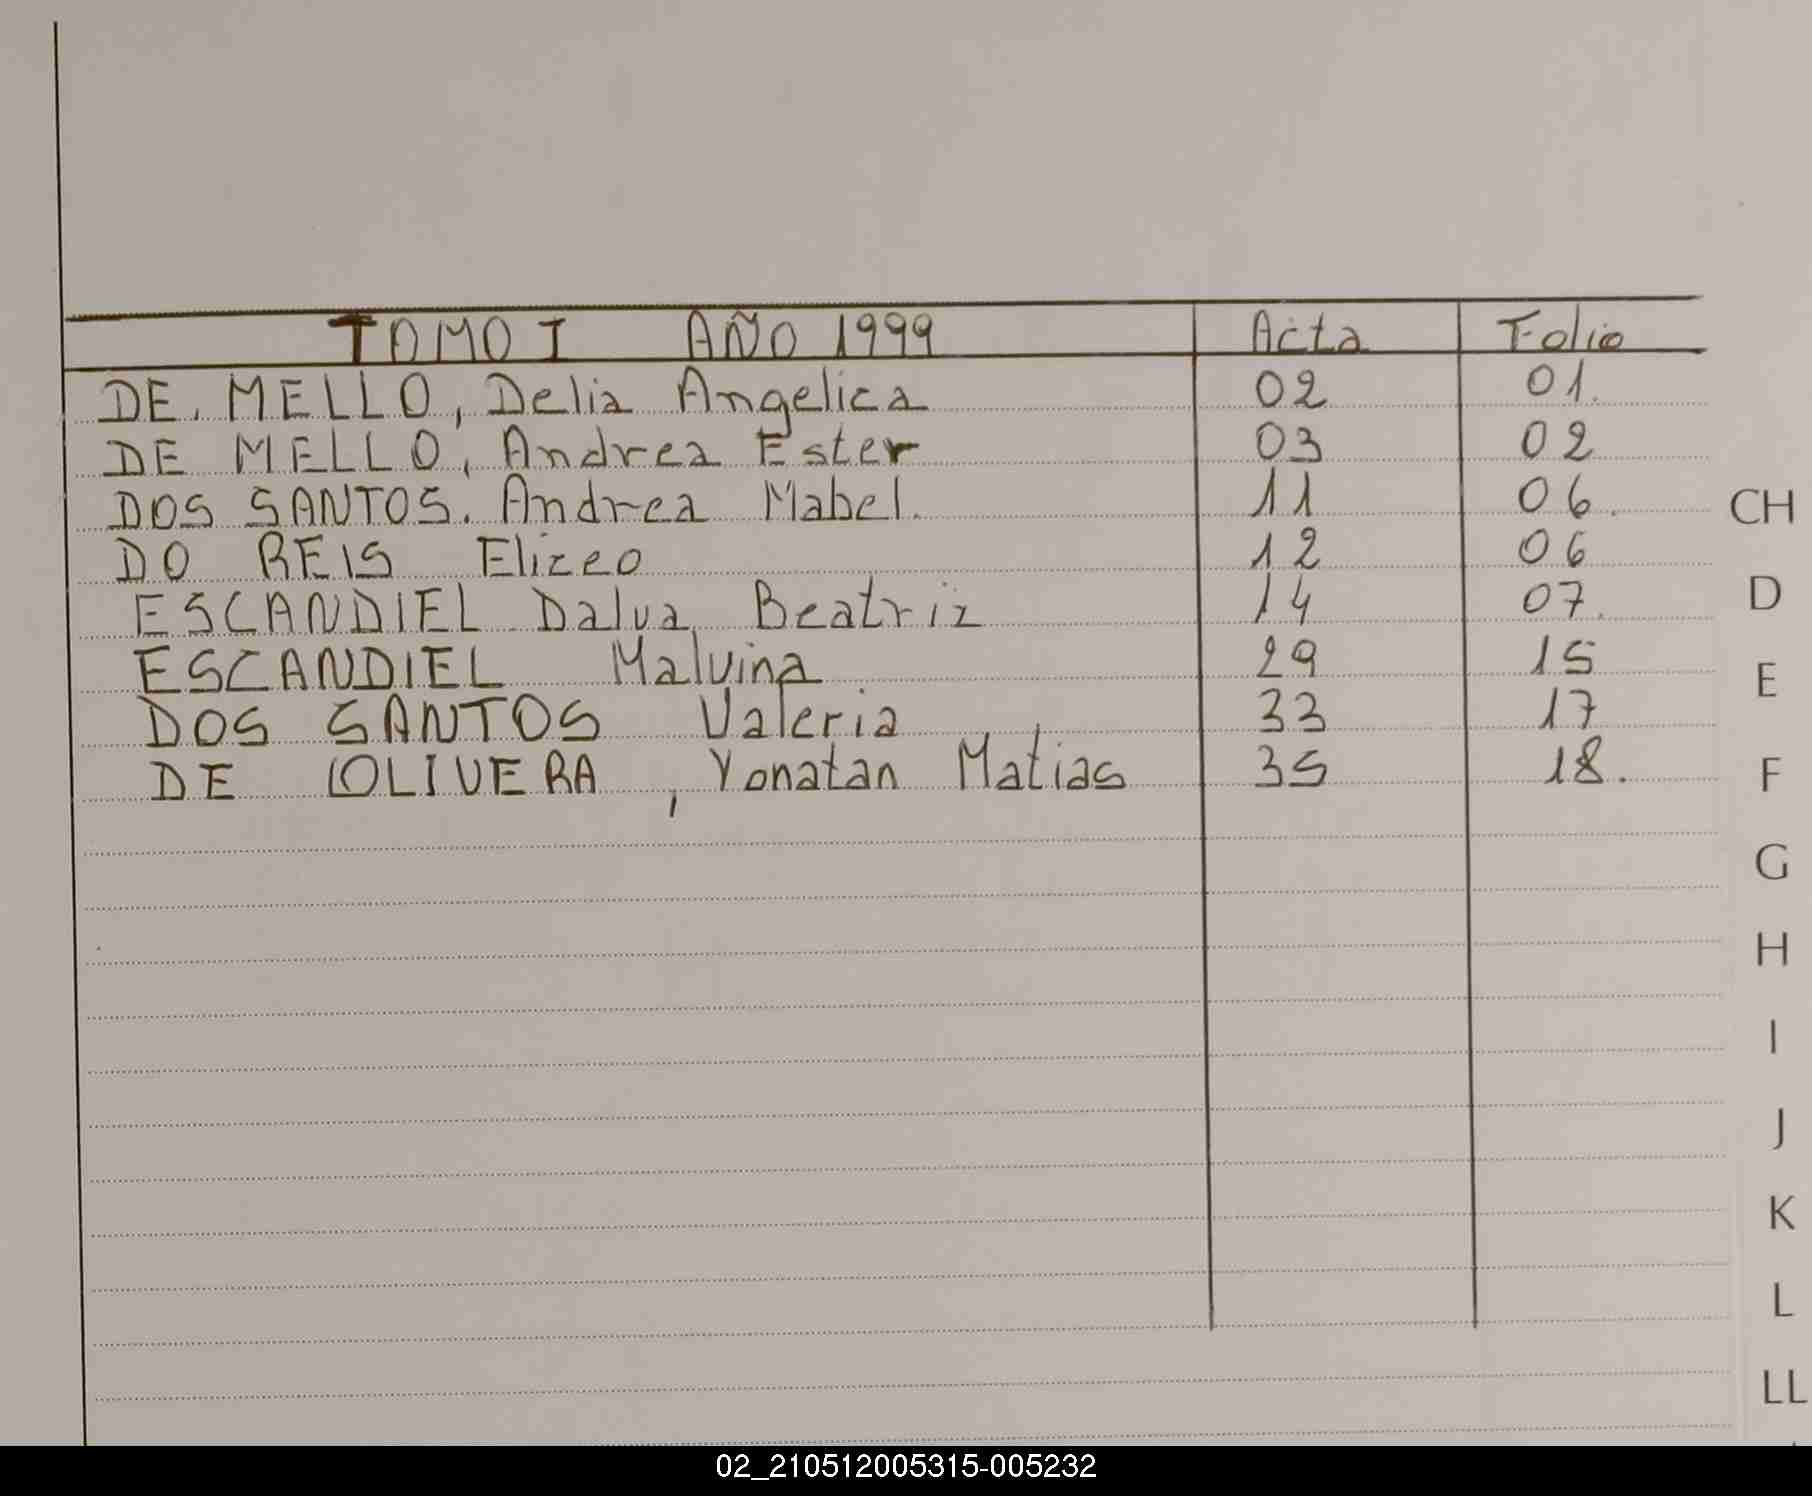 TOMO I AÑO 1999 Acta Folio
DE. MELLO, Delia Angelica 02 01.
DE MELLO, Andrea Ester 03 02
DOS SANTOS. Andrea Mabel. 11 06.
CH
DO REIS Elizeo 12 06
ESCANDIEL Dalva Beatriz 14 07.
D
ESCANDIEL Malvina 29 15
E
DOS SANTOS Valeria 33 17
DE OLIVERA, Yonatan Matias 35 18.
F
G
H
I
J
K
L
LL
02_210512005315-005232